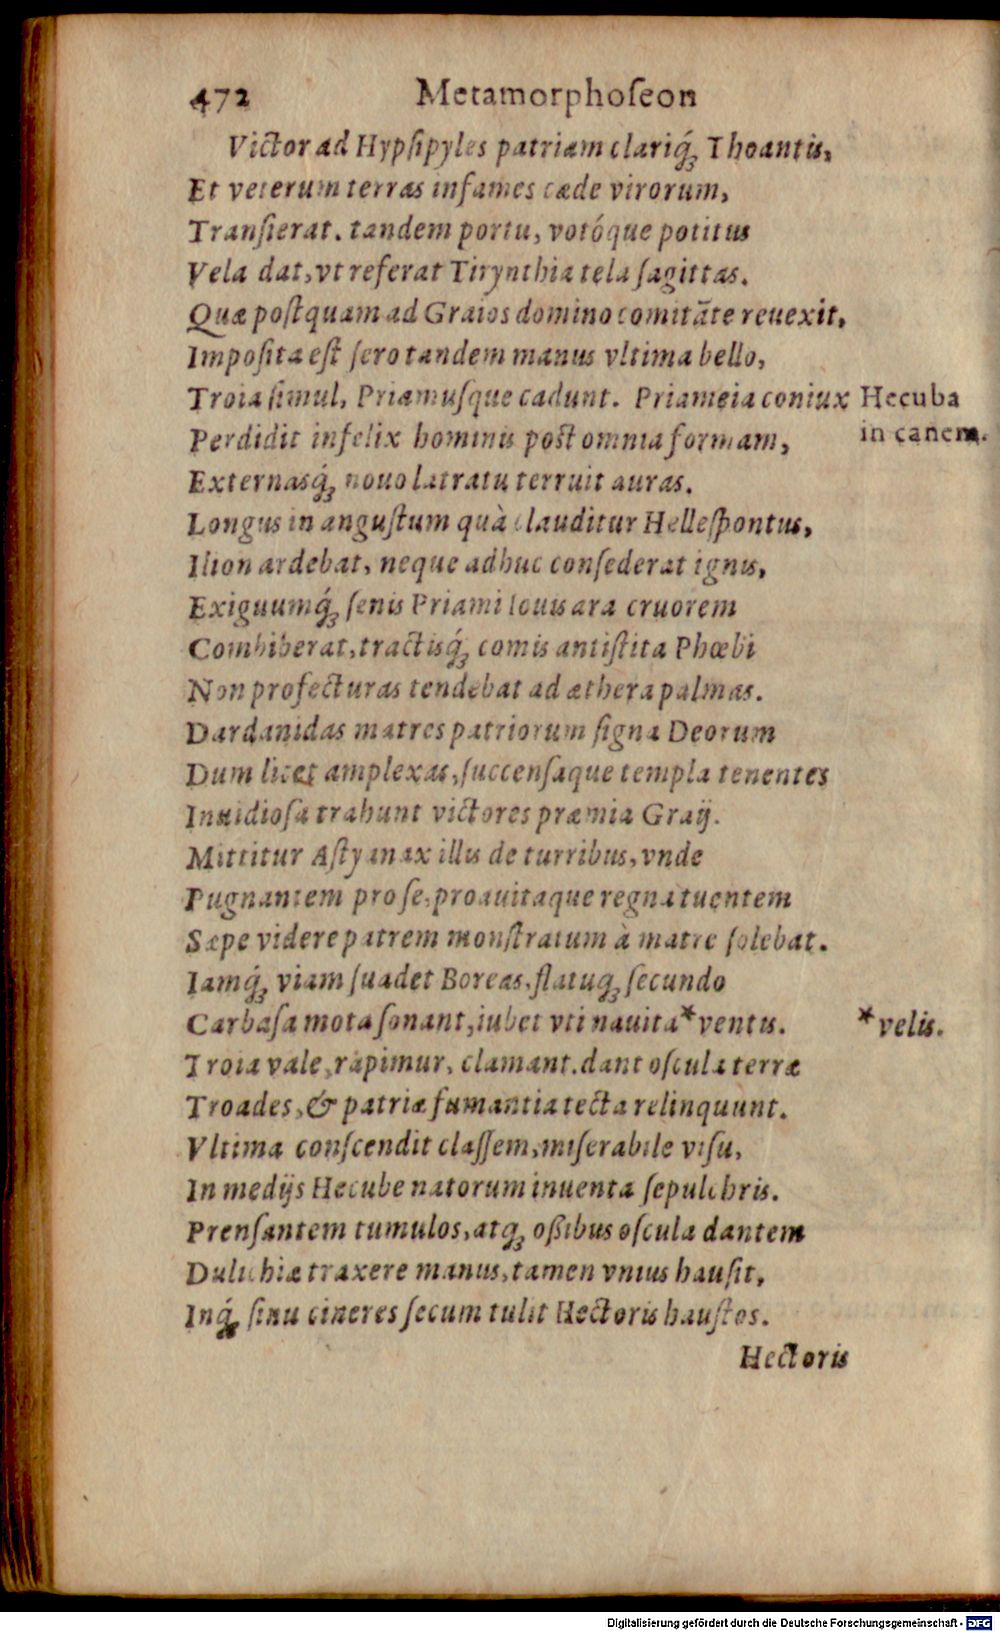 472 Metamorphoſeon
Victor ad Hypſipyles patriam clariq́ꝫ Thoantis,
Et veterum terras infames cæde virorum,
Tranſierat. tandem portu, votóque potitus
Vela dat, vt referat Tirynthia tela ſagittas.
Quæ poſtquam ad Graios domino comitāte reuexit,
Impoſita eſt ſero tandem manus vltima bello,
Troia ſimul, Priamuſque cadunt. Priameia coniux
Hecuba
Perdidit infelix hominis poſt omnia formam,
in canem.
Externasq́ꝫ nouo latratu terruit auras.
Longus in anguſtum quà clauditur Helleſpontus,
Ilion ardebat, neque adhuc conſederat ignis,
Exiguumq́ꝫ ſenis Priami Iouis ara cruorem
Combiberat, tractisq́ꝫ comis antiſtita Phœbi
Non profecturas tendebat ad æthera palmas.
Dardanidas matres patriorum ſigna Deorum
Dum licet amplexas, ſuccenſaque templa tenentes
Inuidioſa trahunt victores præmia Graij.
Mittitur Aſtyanax illis de turribus, vnde
Pugnantem pro ſe, proauitaque regna tuentem
Sæpe videre patrem monſtratum à matre ſolebat.
Iamq́ꝫ viam ſuadet Boreas, flatuqꝫ ſecundo
Carbaſa mota ſonant, iubet vti nauita*ventis.
*velis.
Troia vale, rapimur, clamant. dant oſcula terræ
Troades, & patriæ fumantia tecta relinquunt.
Vltima conſcendit claſſem, miſerabile viſu,
In medijs Hecube natorum inuenta ſepulchris.
Prenſantem tumulos, atqꝫ oßibus oſcula dantem
Dulichiæ traxere manus, tamen vnius hauſit,
Inq́ꝫ ſinu cineres ſecum tulit Hectoris hauſtos.
Hectoris
Digitalisierung gefördert durch die Deutsche Forschungsgemeinschaft - DFG